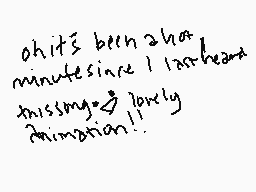 oh it's been a hot
minute since I last heard
missing. lovely
Animation!!